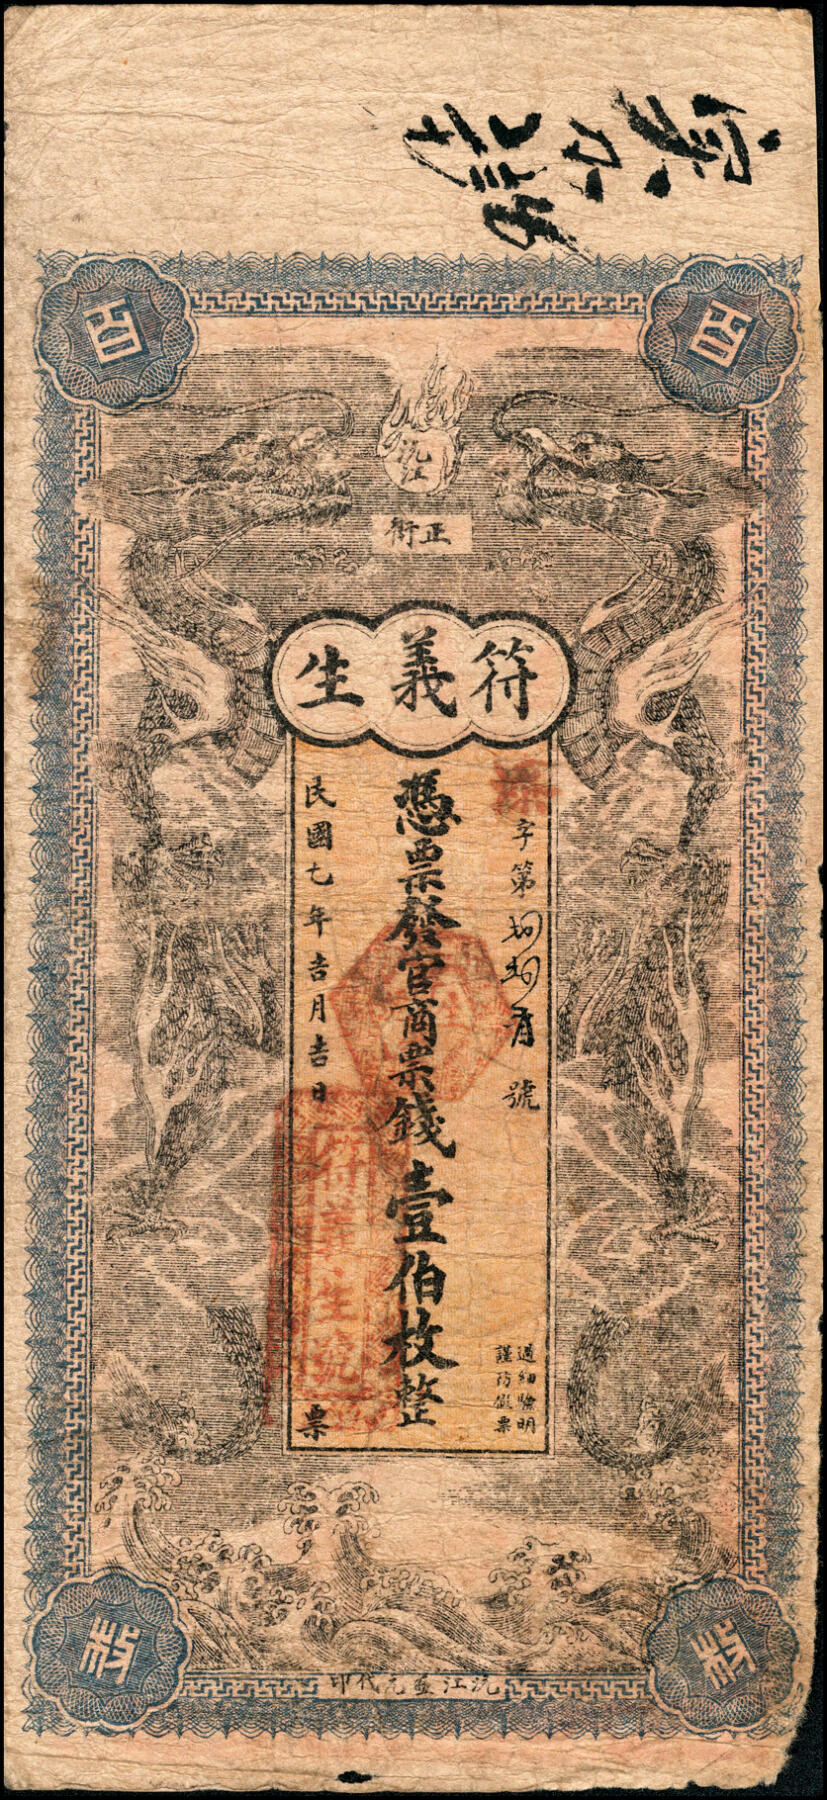 百
百
沅江
正街
符義生
孫字第
號
憑票發官商票錢壹伯枚整
民國七年吉月吉日
票
過細驗明
謹防假票
符義生號
枚
枚
沅江益元代印